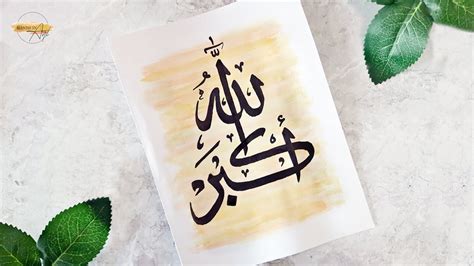 اللهُ
أكبر